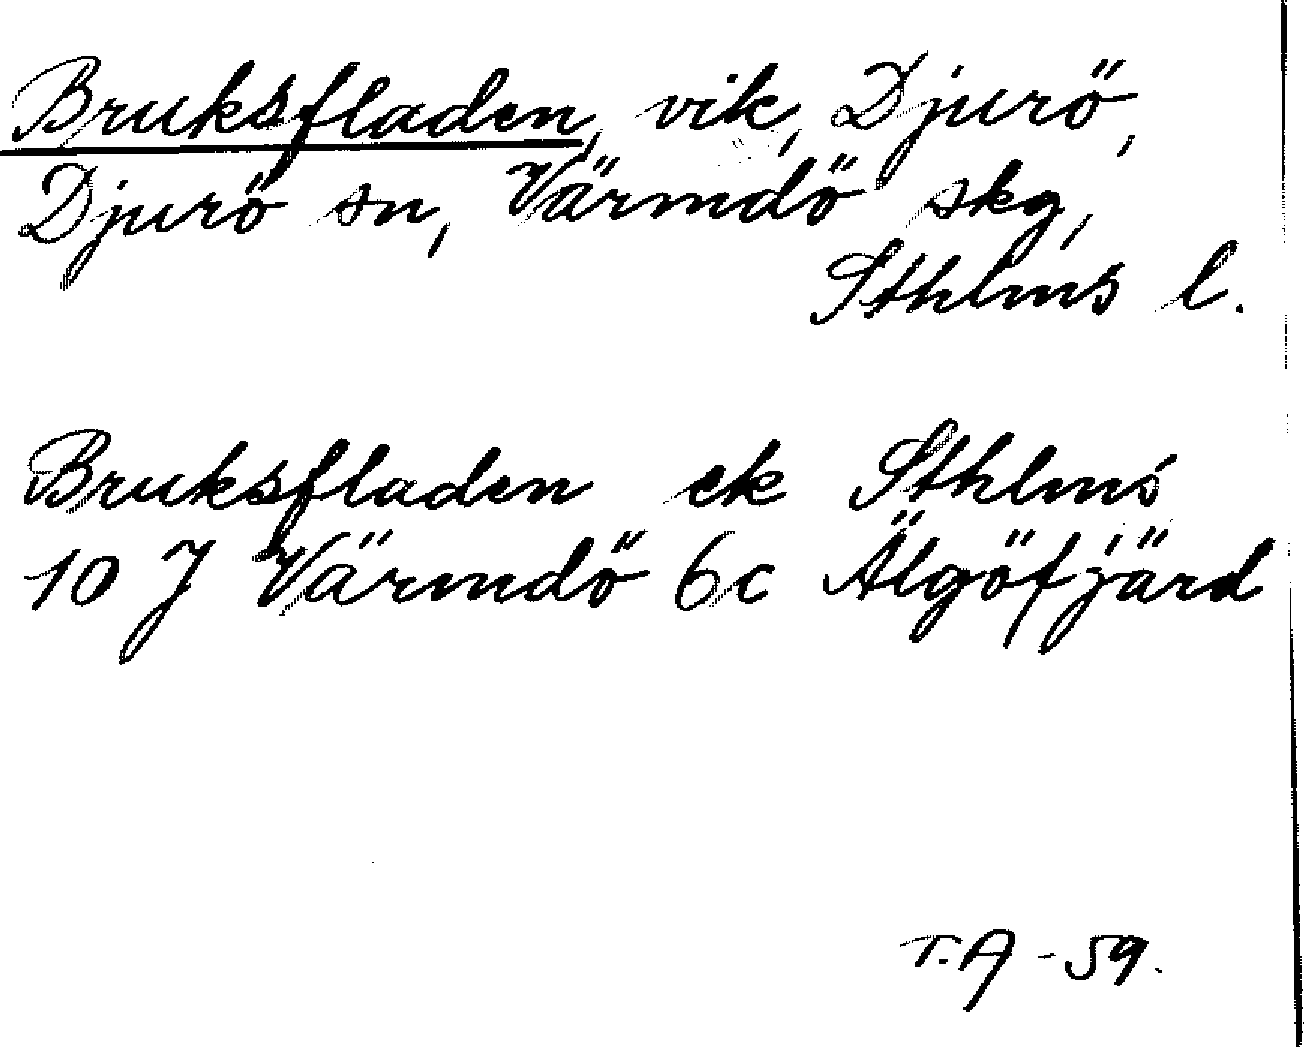 Bruksfladen, vik, Djurö,
Djurö sn, Värmdö skg,
Sthlms l.
Bruksfladen ek Sthlms
10 J Värmdö 6c Älgöfjärd
T.A - 59.